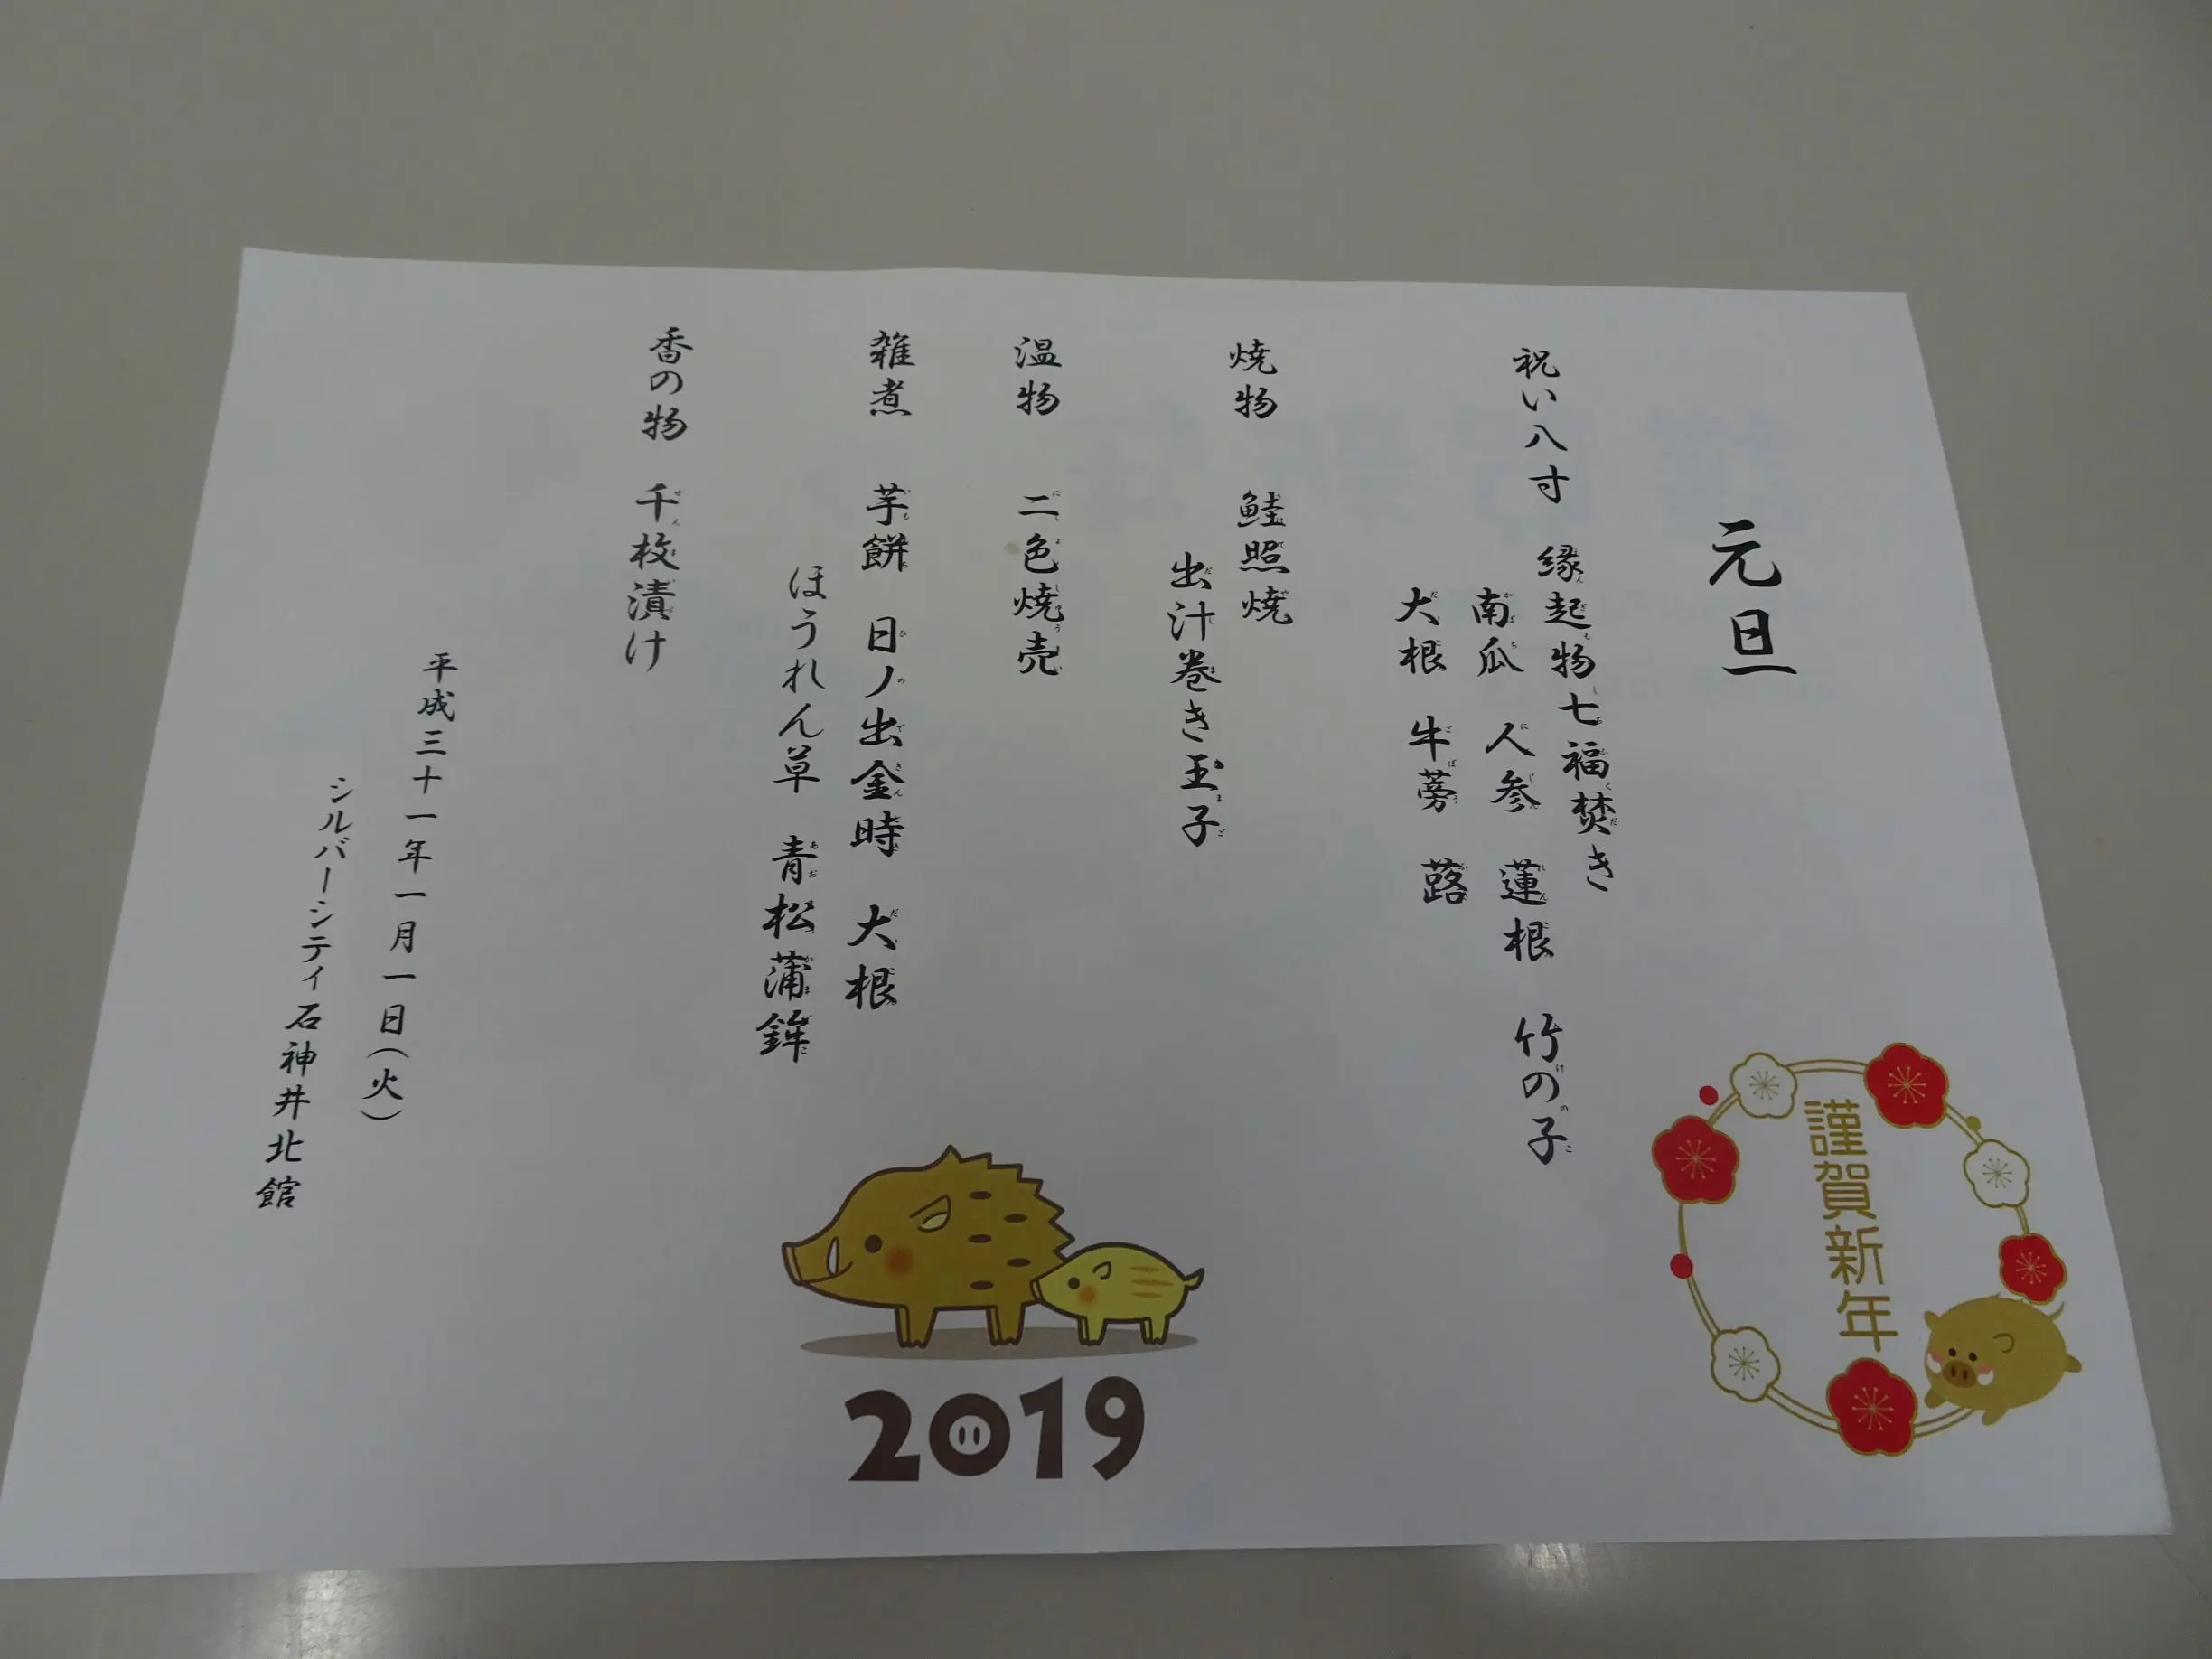 元旦
祝い八寸 縁起物七福焚き
南瓜 人参 蓮根 竹の子
大根 牛蒡 蕗
焼物 鮭照焼
出汁巻き玉子
温物 二色焼売
雑煮 芋餅 日ノ出金時 大根
ほうれん草 青松蒲鉾
香の物 千枚漬け
平成三十一年一月一日(火)
シルバーシティ石神井北館
謹賀新年
2019